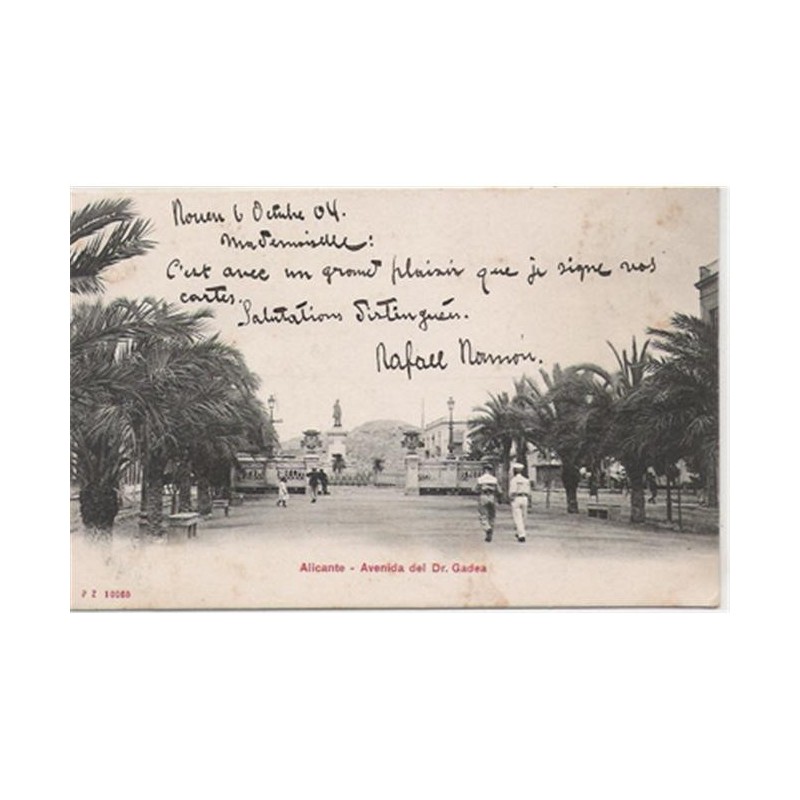 Rouen 6 Octubre 04.
Mademoiselle:
C'est avec un grand plaisir que je signe vos
cartes.
Salutations distinguées.
Rafael Ramón.
Alicante - Avenida del Dr. Gadea
P Z 10065